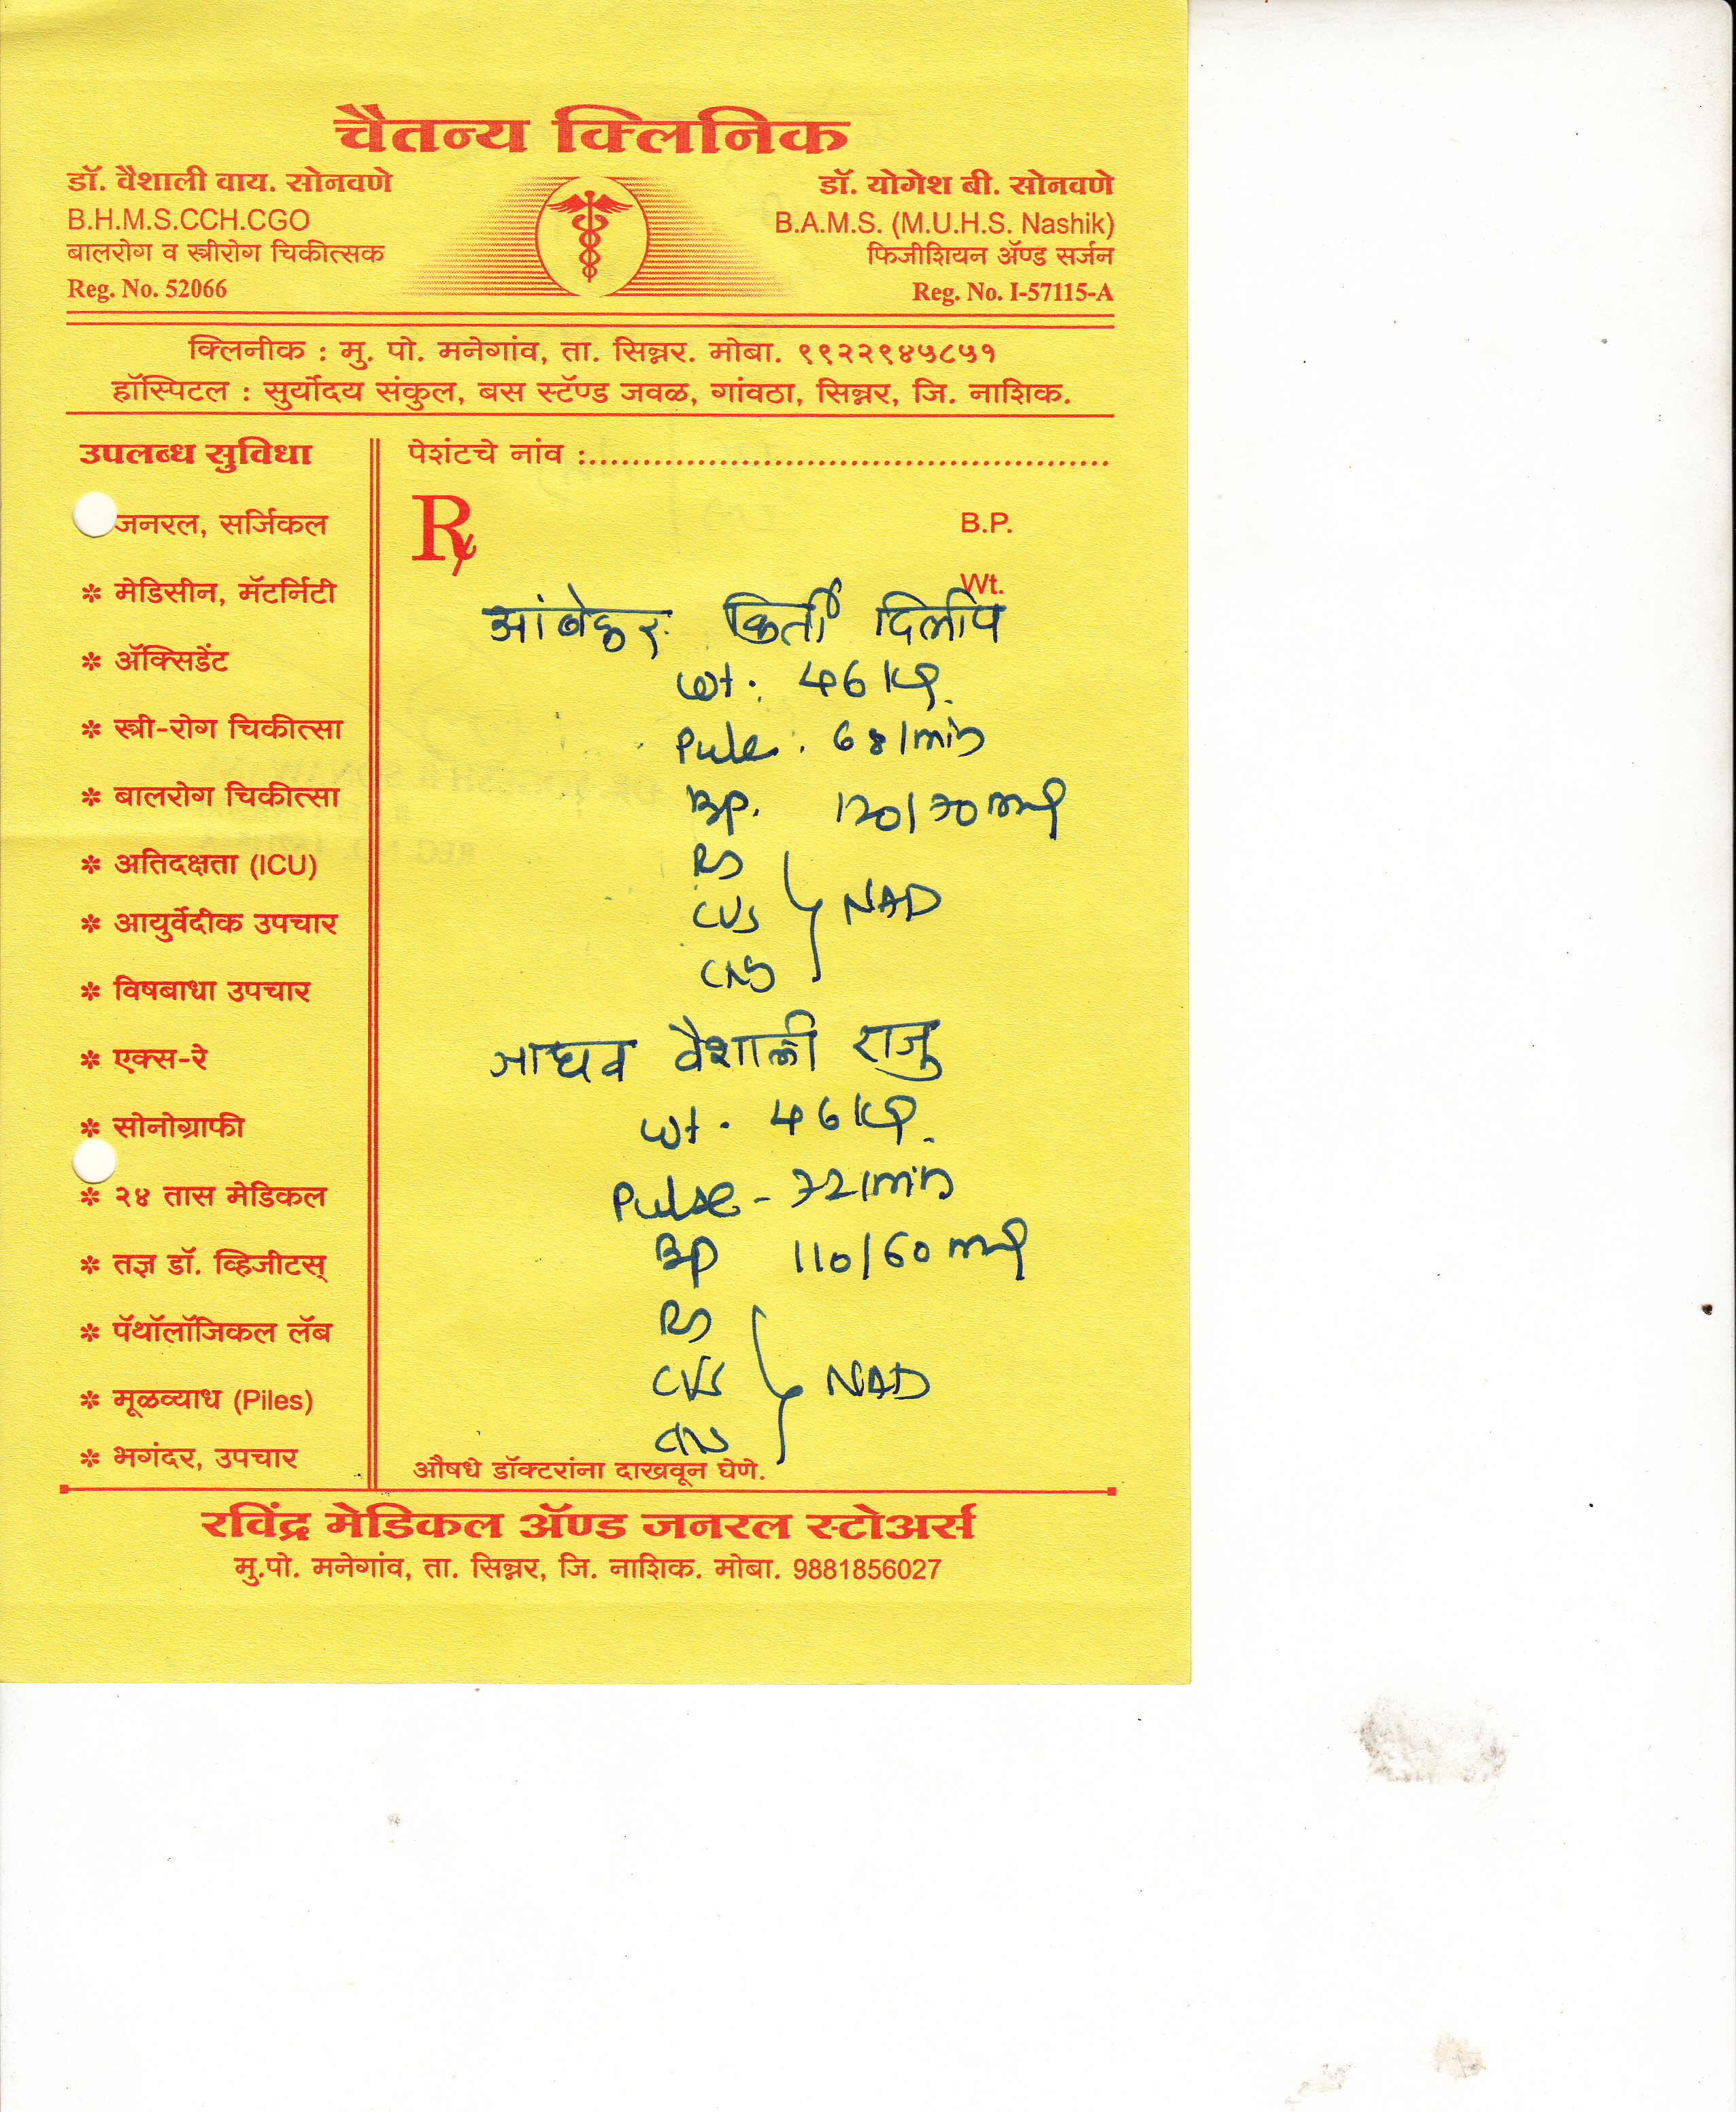 चैतन्य क्लिनिक
डॉ. वैशाली वाय. सोनवणे
B.H.M.S.CCH.CGO
बालरोग व स्त्रीरोग चिकीत्सक
Reg. No. 52066
डॉ. योगेश बी. सोनवणे
B.A.M.S. (M.U.H.S. Nashik)
फिजीशियन ॲण्ड सर्जन
Reg. No. I-57115-A
क्लिनीक : मु. पो. मनेगांव, ता. सिन्नर. मोबा. ९९२२९४५८५१
हॉस्पिटल : सुर्योदय संकुल, बस स्टॅण्ड जवळ, गांवठा, सिन्नर, जि. नाशिक.
उपलब्ध सुविधा
जनरल, सर्जिकल
* मेडिसीन, मॅटर्निटी
* ॲक्सिडेंट
* स्त्री-रोग चिकीत्सा
* बालरोग चिकीत्सा
* अतिदक्षता (ICU)
* आयुर्वेदीक उपचार
* विषबाधा उपचार
* एक्स-रे
* सोनोग्राफी
* २४ तास मेडिकल
* तज्ञ डॉ. व्हिजीटस्
* पॅथॉलॉजिकल लॅब
* मूळव्याध (Piles)
* भगंदर, उपचार
पेशंटचे नांव :
Rx
B.P.
Wt.
किर्ती दिलीप
Wt. 46 kg.
Pulse. 68/min
BP. 120/70 mmHg
RS
CVS
CNS
NAD
जाधव वैशाली राजु
Wt. 46 kg.
Pulse - 72/min
BP 110/60 mmHg
RS
CVS
CNS
NAD
औषधे डॉक्टरांना दाखवून घेणे.
रविंद्र मेडिकल ॲण्ड जनरल स्टोअर्स
मु.पो. मनेगांव, ता. सिन्नर, जि. नाशिक. मोबा. 9881856027